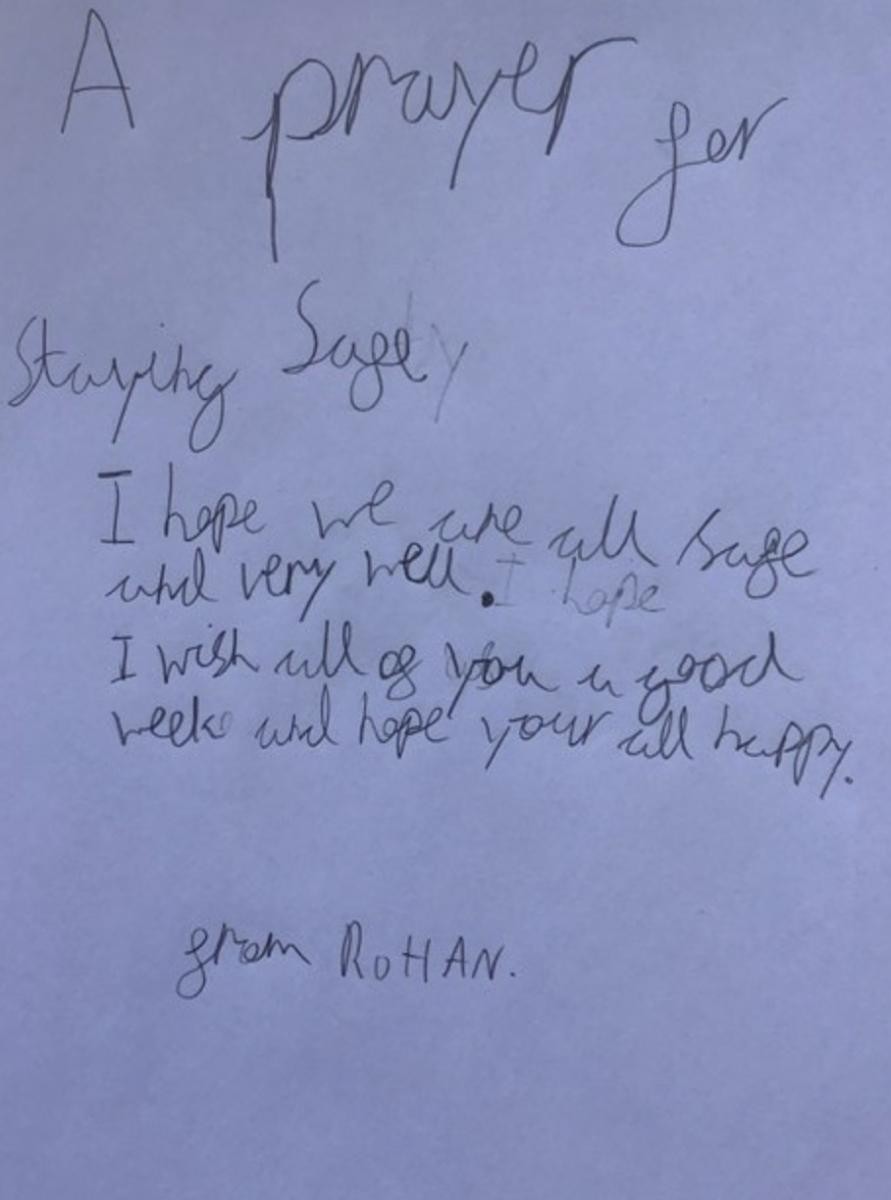 A prayer for
Staying Safe
I hope we are all safe
and very well. I hope
I wish all of you a good
week and hope your all happy.
from ROHAN.